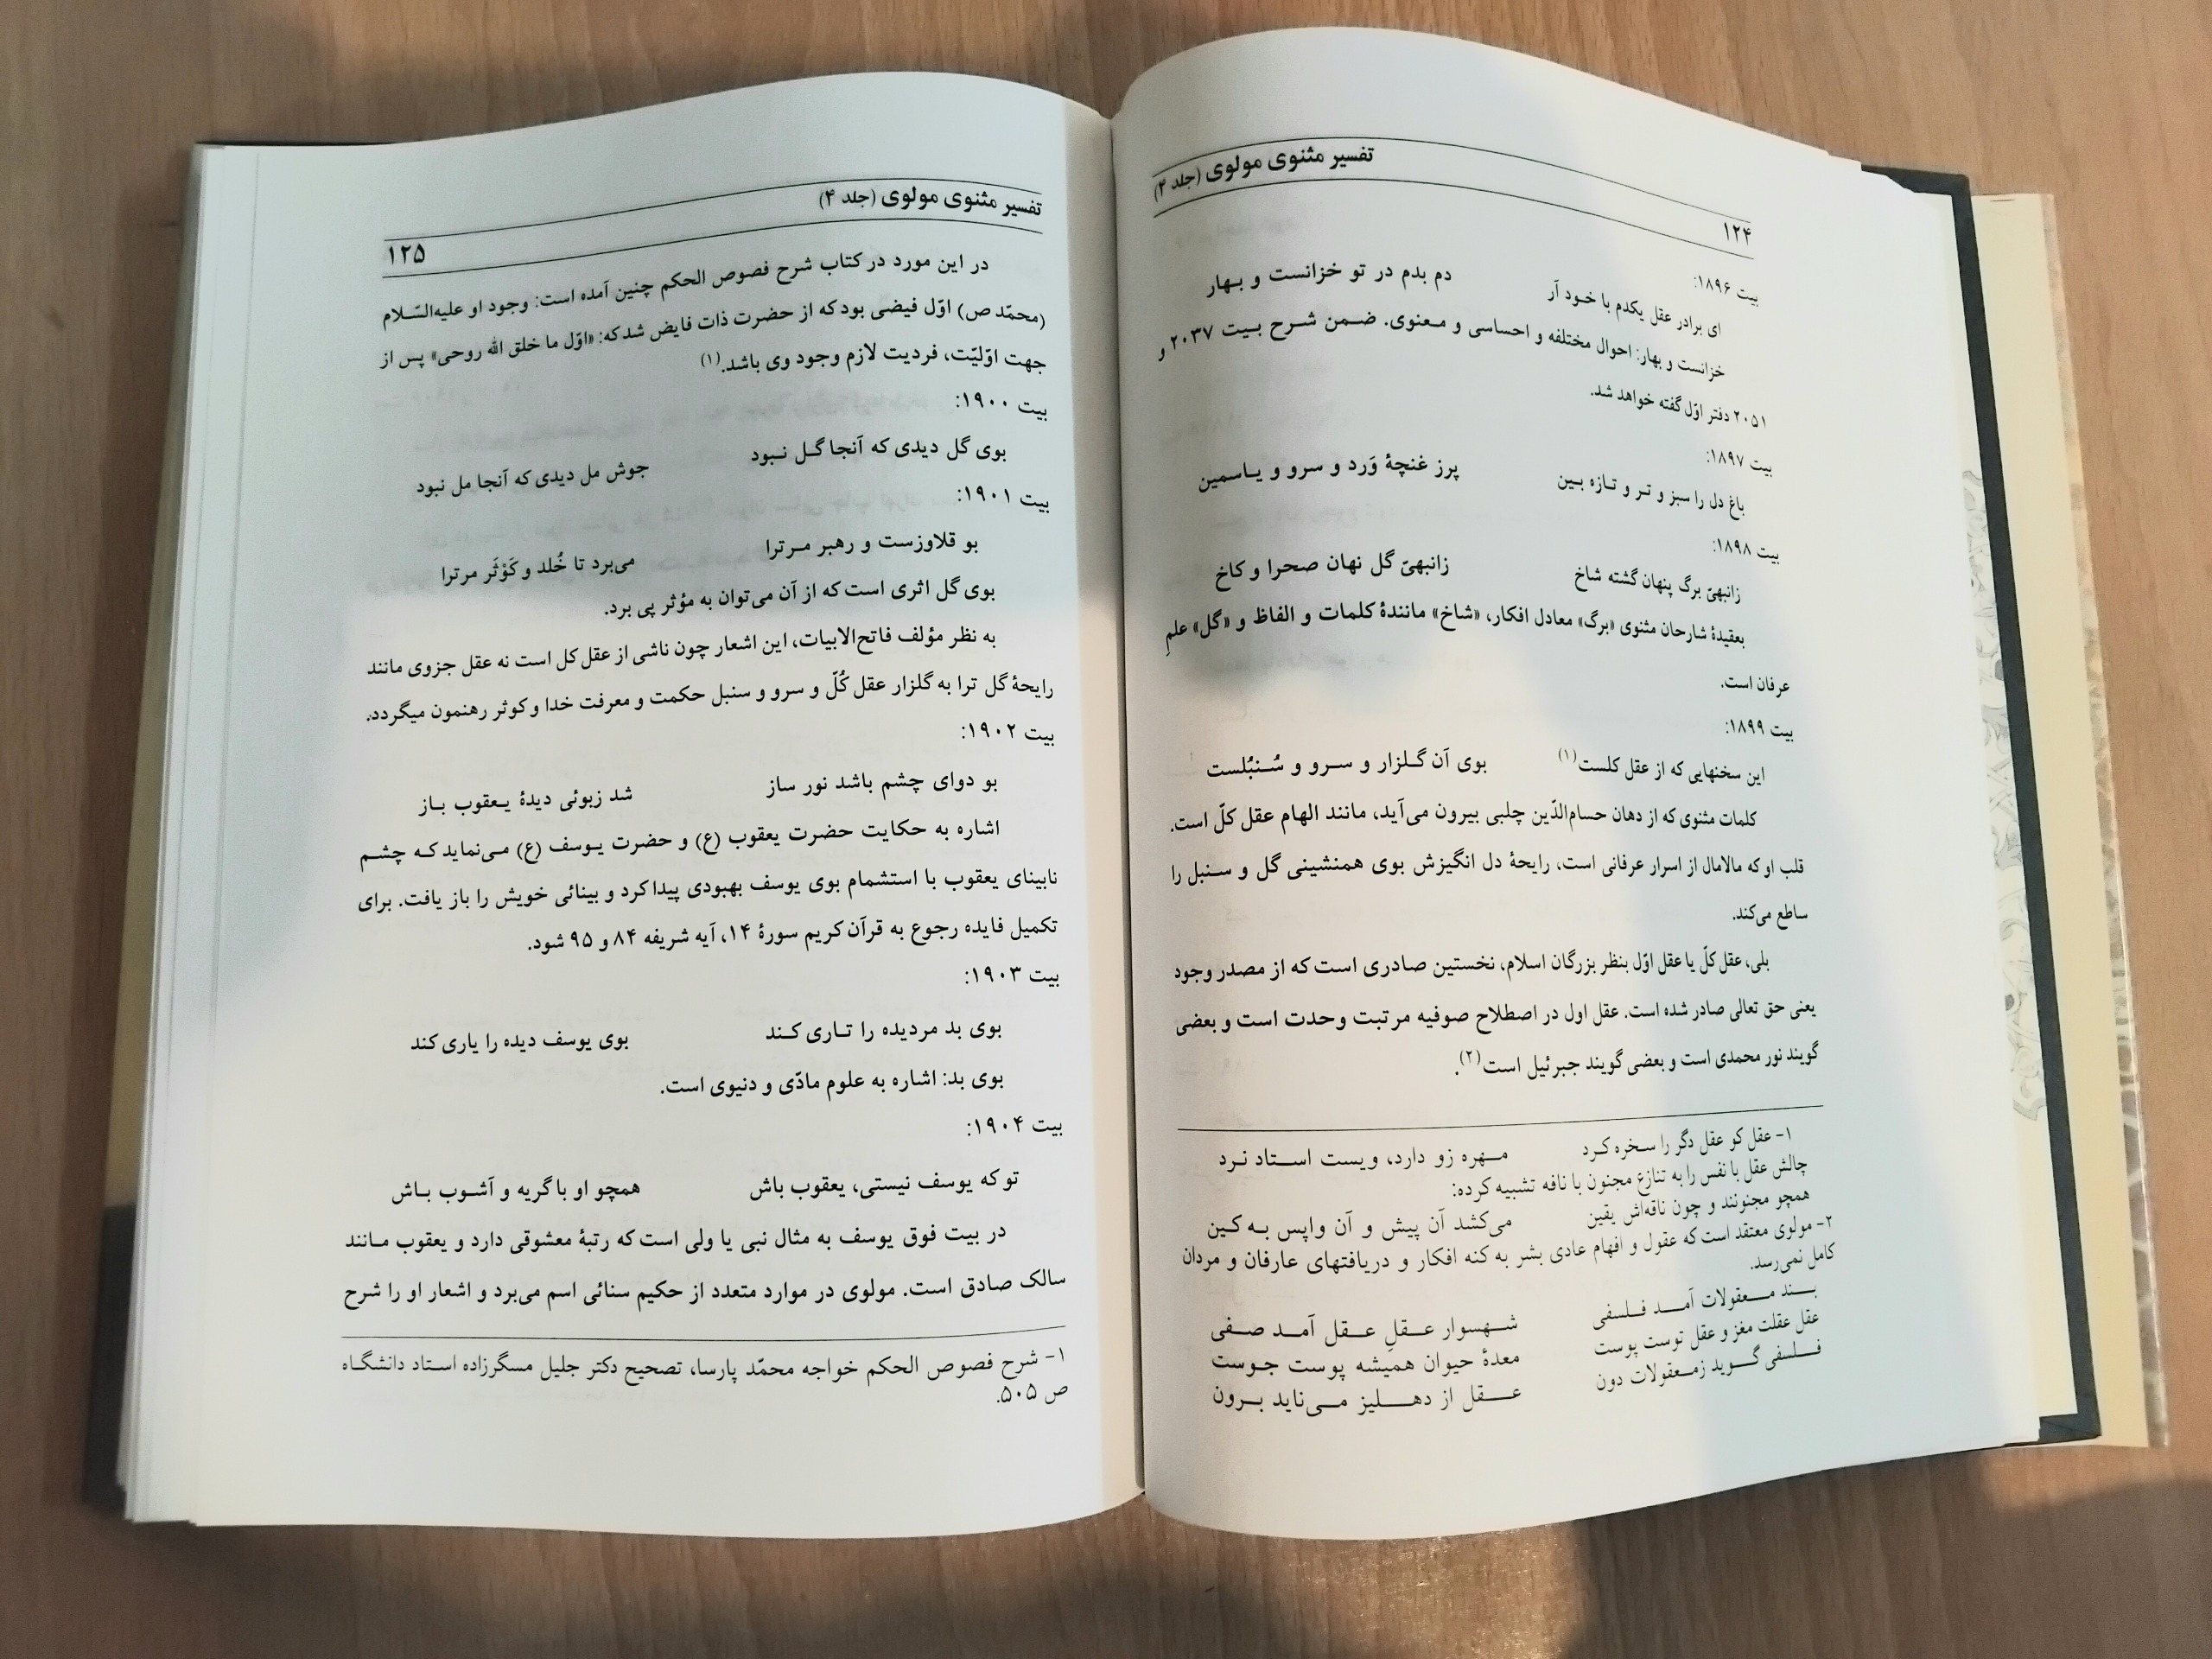 تفسیر مثنوی مولوی (جلد ۴)
۱۲۴
بیت ۱۸۹۶:
ای برادر عقل یکدم با خود آر دم بدم در تو خزانست و بهار
خزانست و بهار: احوال مختلفه و احساسی و معنوی. ضمن شرح بیت ۲۰۳۷ و
۲۰۵۱ دفتر اوّل گفته خواهد شد.
بیت ۱۸۹۷:
باغ دل را سبز و تر و تازه بین پرز غنچهٔ وَرد و سرو و یاسمین
بیت ۱۸۹۸:
زانبهیّ برگ پنهان گشته شاخ زانبهیّ گل نهان صحرا و کاخ
بعقیدهٔ شارحان مثنوی «برگ» معادل افکار، «شاخ» مانندهٔ کلمات و الفاظ و «گل» علمِ
عرفان است.
بیت ۱۸۹۹:
این سخنهایی که از عقل کلست(۱) بوی آن گلزار و سرو و سُنبُلست
کلمات مثنوی که از دهان حسام‌الدّین چلبی بیرون می‌آید، مانند الهام عقل کلّ است.
قلب او که مالامال از اسرار عرفانی است، رایحهٔ دل انگیزش بوی همنشینی گل و سنبل را
ساطع می‌کند.
بلی، عقل کلّ یا عقل اوّل بنظر بزرگان اسلام، نخستین صادری است که از مصدر وجود
یعنی حق تعالی صادر شده است. عقل اول در اصطلاح صوفیه مرتبت وحدت است و بعضی
گویند نور محمدی است و بعضی گویند جبرئیل است(۲).
۱- عقل کو عقل دگر را سخره کرد مهره زو دارد، ویست استاد نرد
چالش عقل با نفس را به تنازع مجنون با ناقه تشبیه کرده:
همچو مجنونند و چون ناقه‌اش یقین می‌کشد آن پیش و آن واپس به کین
۲- مولوی معتقد است که عقول و افهام عادی بشر به کنه افکار و دریافتهای عارفان و مردان
کامل نمی‌رسد.
بند معقولات آمد فلسفی شهسوار عقلِ عقل آمد صفی
عقل عقلت مغز و عقل توست پوست معدهٔ حیوان همیشه پوست جوست
فلسفی گوید زمعقولات دون عقل از دهلیز می‌ناید برون
تفسیر مثنوی مولوی (جلد ۴)
۱۲۵
در این مورد در کتاب شرح فصوص الحکم چنین آمده است: وجود او علیه‌السّلام
(محمّد ص) اوّل فیضی بود که از حضرت ذات فایض شد که: «اوّل ما خلق الله روحی» پس از
جهت اوّلیّت، فردیت لازم وجود وی باشد.(۱)
بیت ۱۹۰۰:
بوی گل دیدی که آنجا گل نبود جوش مل دیدی که آنجا مل نبود
بیت ۱۹۰۱:
بو قلاوزست و رهبر مرترا می‌برد تا خُلد و کَوْثَر مرترا
بوی گل اثری است که از آن می‌توان به مؤثر پی برد.
به نظر مؤلف فاتح‌الابیات، این اشعار چون ناشی از عقل کل است نه عقل جزوی مانند
رایحهٔ گل ترا به گلزار عقل کُلّ و سرو و سنبل حکمت و معرفت خدا و کوثر رهنمون میگردد.
بیت ۱۹۰۲:
بو دوای چشم باشد نور ساز شد زبوئی دیدهٔ یعقوب باز
اشاره به حکایت حضرت یعقوب (ع) و حضرت یوسف (ع) می‌نماید که چشم
نابینای یعقوب با استشمام بوی یوسف بهبودی پیدا کرد و بینائی خویش را باز یافت. برای
تکمیل فایده رجوع به قرآن کریم سورهٔ ۱۴، آیه شریفه ۸۴ و ۹۵ شود.
بیت ۱۹۰۳:
بوی بد مردیده را تاری کند بوی یوسف دیده را یاری کند
بوی بد: اشاره به علوم مادّی و دنیوی است.
بیت ۱۹۰۴:
تو که یوسف نیستی، یعقوب باش همچو او با گریه و آشوب باش
در بیت فوق یوسف به مثال نبی یا ولی است که رتبهٔ معشوقی دارد و یعقوب مانند
سالک صادق است. مولوی در موارد متعدد از حکیم سنائی اسم می‌برد و اشعار او را شرح
۱- شرح فصوص الحکم خواجه محمّد پارسا، تصحیح دکتر جلیل مسگرزاده استاد دانشگاه
ص ۵۰۵.